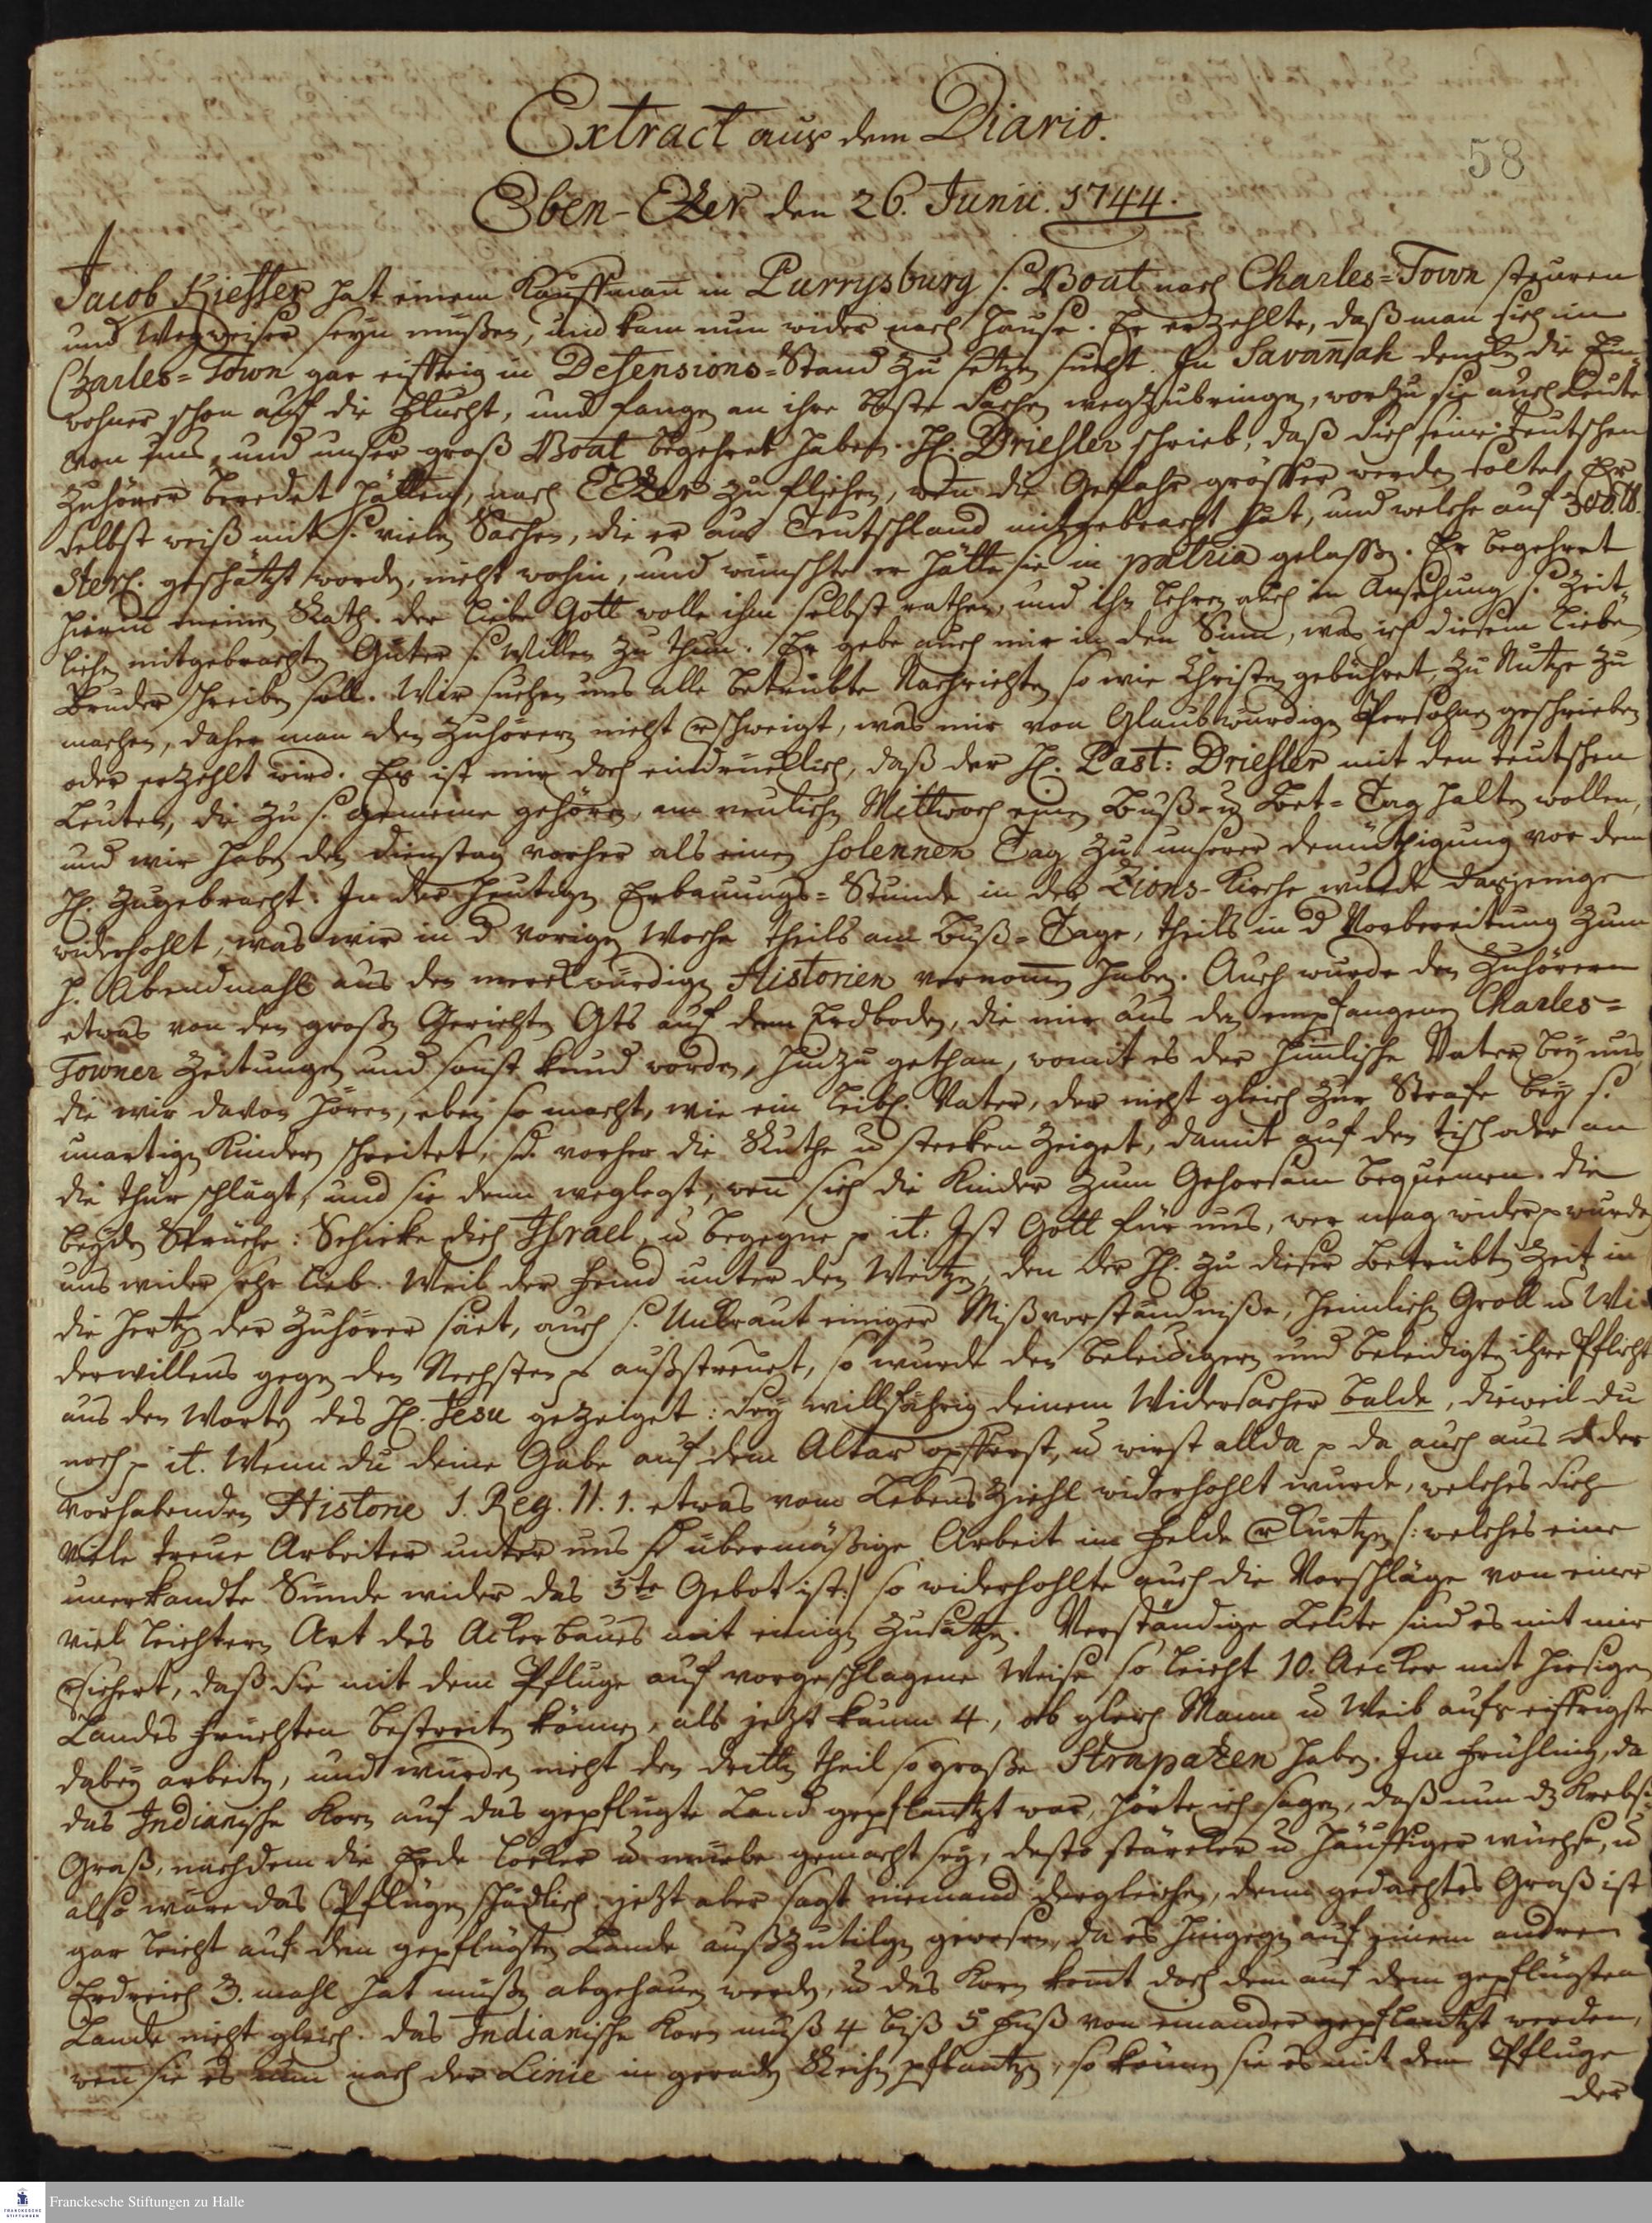 Extract aus dem Diario.
58
Eben-Ezer den 26. Junii. 1744.
Jacob Kieffer hat einem Kauffmañ in Purrysburg s. Boat nach Charles=Town steuren
und Wegweiser seyn müßen, und kam nun wider nach Hause. Er erzehlte, daß man sich in
Charles=Town gar eiffrig in Defensions=Stand zu setzen sucht. In Savañah dencken die Ein¬
wohner schon auf die Flucht, und fangen an ihre beste Sachen wegzubringen, worzu sie auch Leute
von uns, und unser groß Boat begehret haben. H. Driesler schrieb, daß sich seine Teutschen
Zuhörer beredet hätten, nach EEzer zu fliehen, weñ die Gefahr grösser werden solte. Er
selbst weiß mit s. vielen Sachen, die er aus Teutschland mitgebracht hat, und welche auf 300. lb.
Sterl. geschätzt worden, nicht wohin, und wünschte er hätte sie in patria gelassen. Er begehret
hierin meinen Rath. Der liebe Gott wolle ihm selbst rathen, und ihn lehren auch in Ansehung s. Zeit¬
lichen mitgebrachten Güter s. Willen zu thun. Er gebe auch mir in den Sinn, was ich diesem lieben
Bruder schreiben soll. Wir suchen uns alle betrübte Nachrichten so wie Christen gebühret, zu Nutze zu
machen, daher man den Zuhörern nicht verschweigt, was mir von Glaubwürdigen Persohnen geschrieben
oder erzehlt wird. Es ist mir doch eindrücklich, daß der H. Past: Driesler mit den teutschen
Leuten, die zu s. Gemeine gehören, am neulichen Mittwoch einen Buß- u. Bet=Tag halten wollen,
und wir haben den Dienstag vorher als einen solennen Tag zu unserer Demüthigung vor dem
H. zugebracht. In der heutigen Erbauungs=Stunde in der Zions-Kirche wurde dasjenige
widerhohlt, was wir in d vorigen Woche theils am Buß=Tage, theils in d Vorbereitung zum
h. Abendmahl aus den merckwürdigen Historien vernom̄en haben. Auch wurde den Zuhörern
etwas von den großen Gerichten Gts auf dem Erdboden, die mir aus den empfangenen Charles=
Towner Zeitungen und sonst kund worden, hinzu gethan, womit es der him̄lische Vater bey uns
die wir davon hören, eben so macht, wie ein leibl. Vater, der nicht gleich zur Strafe bey s.
unartigen Kindern schreitet, sd. vorher die Ruthe u stecken zeiget, damit auf den Tisch oder an
die Thür schlägt, und sie denn weglegt, weñ sich die Kinder zum Gehorsam bequemen. Die
beyden Sprüche: Schicke dich Israel, u begegne p it. Ist Gott für uns, wer mag wider p wurden
uns wider sehr lieb. Weil der Feind unter den Weitzen, den der H. zu dieser betrübten Zeit in
die Hertzen der Zuhörer säet, auch s. Unkraut einiger Mißverständniße, heimlichen Groll u Wi¬
derwillens gegen den Nechsten p außstreuet, so wurde den Beleidigern und Beleidigten ihre Pflicht
aus den Worten des H. Jesu gezeiget: Sey willfährig deinem Widersacher balde, dieweil du
noch p it. Wenn du deine Gabe auf dem Altar opfferst, u wirst allda p da auch aus der
vorhabenden Historie 1. Reg. 11. 1. etwas vom Lebens Ziehl widerhohlt wurde, welches sich
viele treue Arbeiter unter uns übermäßige Arbeit im Felde verkürtzen /: welches eine
unerkandte Sünde wider das 5te Gebot ist:/ so widerhohlte auch die Vorschläge von einer
viel leichtern Art des Ackerbaues mit einigen Zusätzen. Verständige Leute sind es mit mir
versichert, daß sie mit dem Pfluge auf vorgeschlagene Weise so leicht 10. Aecker mit hiesigen
Landes früchten bestreiten können, als jetzt kaum 4, ob gleich Mann u Weib aufs eiffrigste
dabey arbeiten, und würden nicht den dritten theil so große Strapazen haben. Im Frühling, da
das Indianische Korn auf das gepflügte Land gepflantzt war, hörte ich sagen, daß nun dz Krebs=
Graß, nachdem die Erde locker u mürbe gemacht sey, desto stärcker u häuffiger wüchse, u
also wäre das Pflügen schädlich. jetzt aber sagt niemand dergleichen, denn gedachtes Graß ist
gar leicht auf dem gepflügten Lande außzutilgen gewesen, da es hingegen auf einem andren
Erdreich 3. mahl hat müßen abgehauen werden, u das Korn kom̄t doch dem auf dem gepflügten
Lande nicht gleich. Das Indianische Korn muß 4 biß 5 Fuß von einander gepflantzt werden,
weñ sie es nun nach der Linie in geraden Reihen pflantzen, so können sie es mit dem Pfluge
der
Franckesche Stiftungen zu Halle